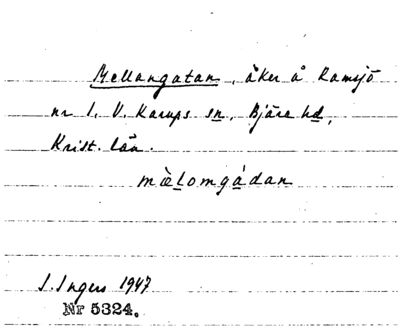 Mellangatan, åker å Ramsjö
nr 1, V. Karups sn., Bjäre hd,
Krist. län.
mæ̀lomgádan
I. Ingers 1947
Nr 5324.